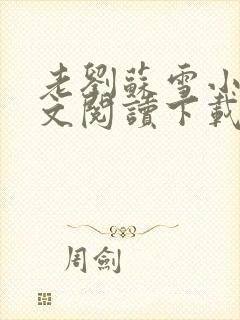 老劉蘇雪小
文閱讀下載
周劍